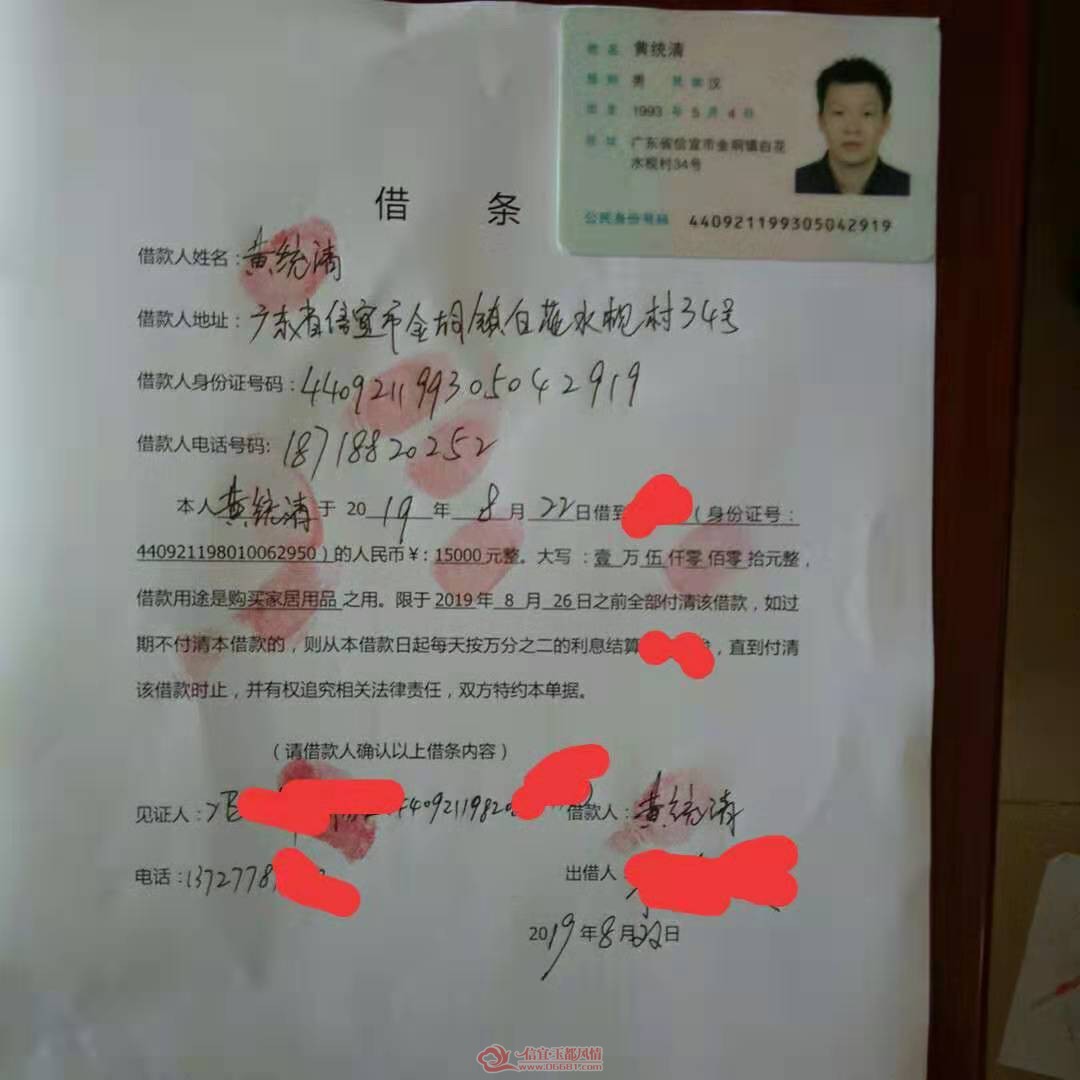 姓名 黄统清
性别 男 民族 汉
出生 1993 年 5 月 4 日
住址 广东省信宜市金垌镇白花
水枧村34号
公民身份号码 440921199305042919
借 条
借款人姓名：黄统清
借款人地址：广东省信宜市金垌镇白花水枧村34号
借款人身份证号码：440921199305042919
借款人电话号码：18718820252
本人黄统清于 2019 年 8 月 22日借到（身份证号：
440921198010062950）的人民币￥：15000元整。大写：壹 万 伍 仟零 佰零 拾元整，
借款用途是购买家居用品 之用。限于 2019年 8 月 26日之前全部付清该借款，如过
期不付清本借款的，则从本借款日起每天按万分之二的利息结算，直到付清
该借款时止，并有权追究相关法律责任，双方特约本单据。
（请借款人确认以上借条内容）
见证人： 44092119820 借款人：黄统清
电话：1372778 出借人：
2019年8月22日
信宜玉都风情
www.06681.com